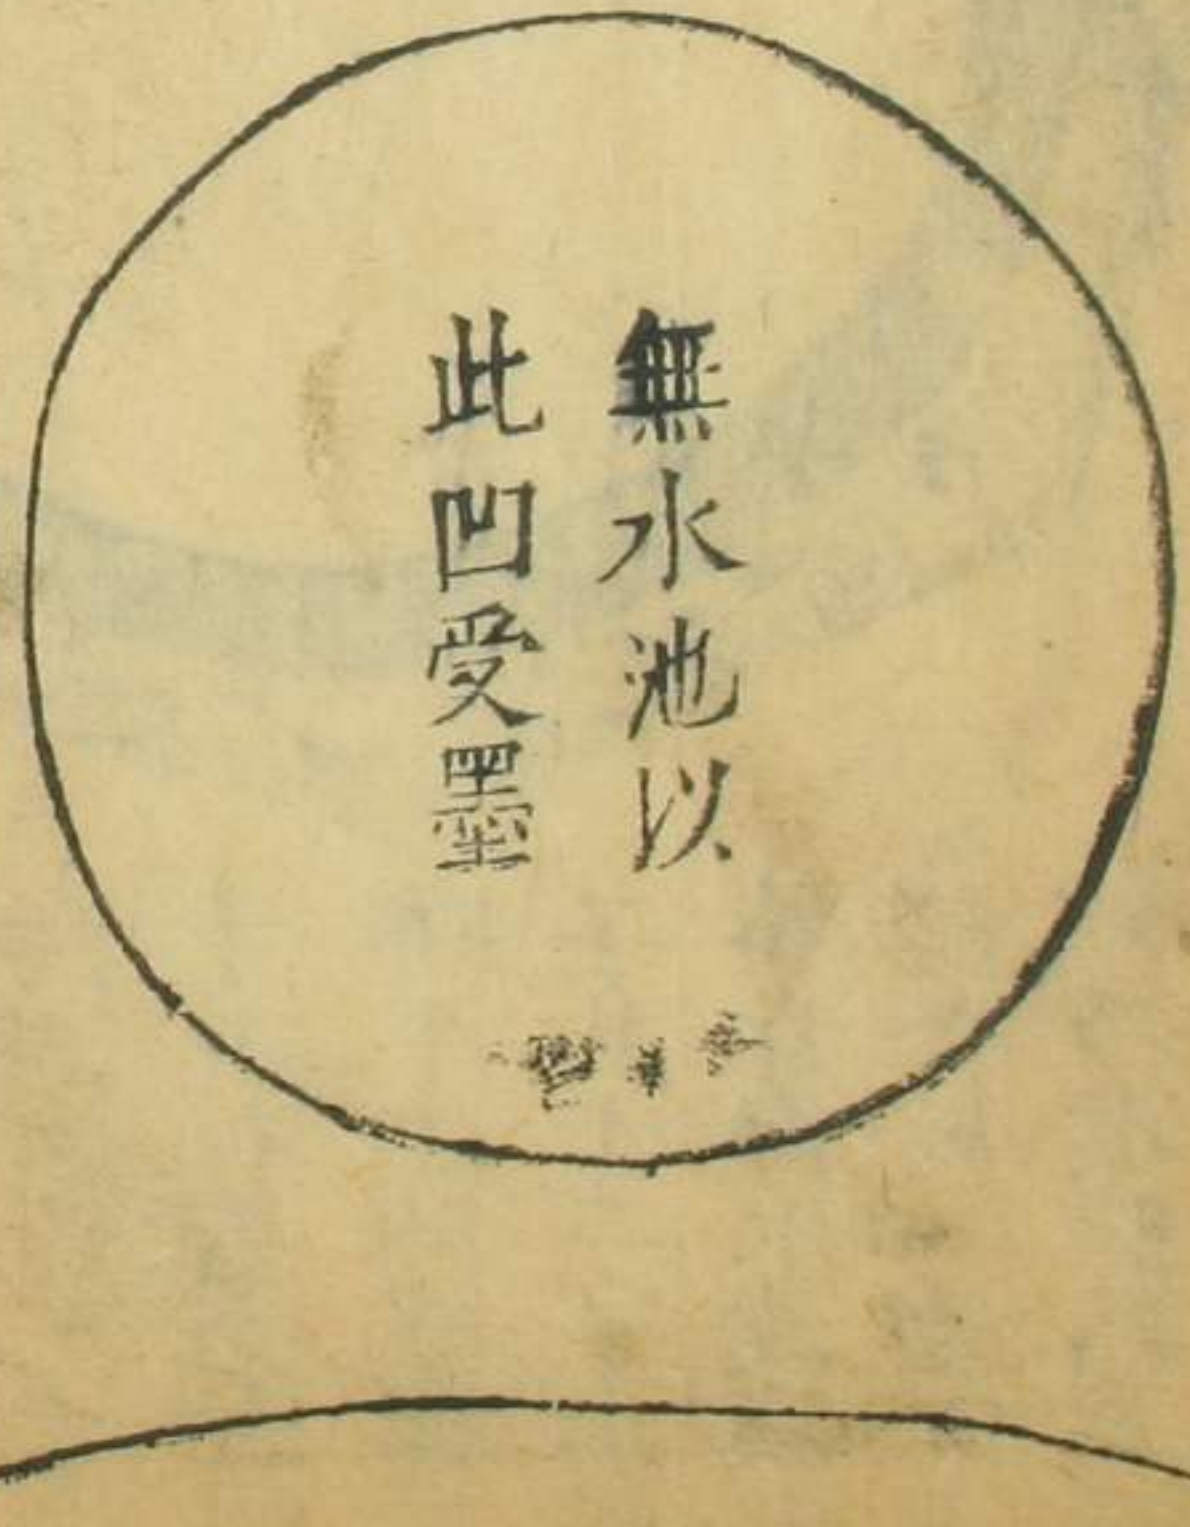 無水池以
此凹受墨